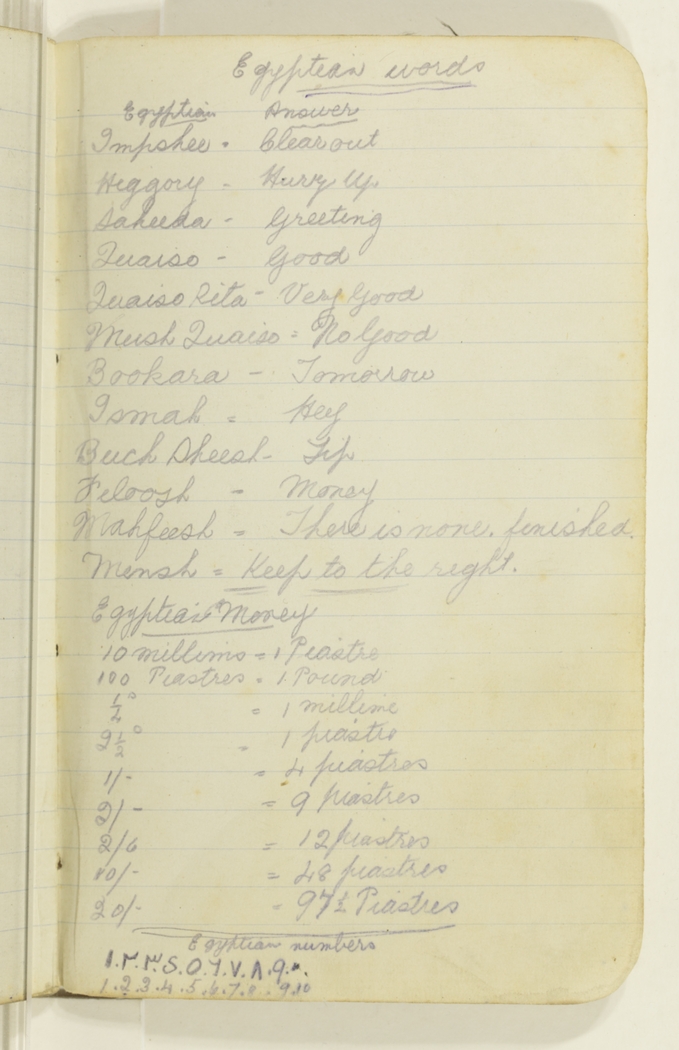 Egyptian words
Egyptian Answer
Impshee - Clear out
Heggory - Hurry Up
Saheeda - Greeting
Quaiso - Good
Quaiso Rita - Very Good
Mush Quaiso = No Good
Bookara - Tomorrow
Ismah = Hey
Buck Sheesh - Tip
Feloosh - Money
Mahfeesh = There is none. finished.
Mensh = Keep to the right.
Egyptian Money
10 millims = 1 Piastre
100 Piastres = 1 Pound
1/4ᵈ = 1 millime
2 1/2ᵈ = 1 piastre
1/- = 4 piastres
2/- = 9 piastres
2/6 = 12 piastres
10/- = 48 piastres
20/- = 97½ Piastres
Egyptian numbers
١.٢.٣.٤.٥.٦.٧.٨.٩.١٠.
1.2.3.4.5.6.7.8.9.10